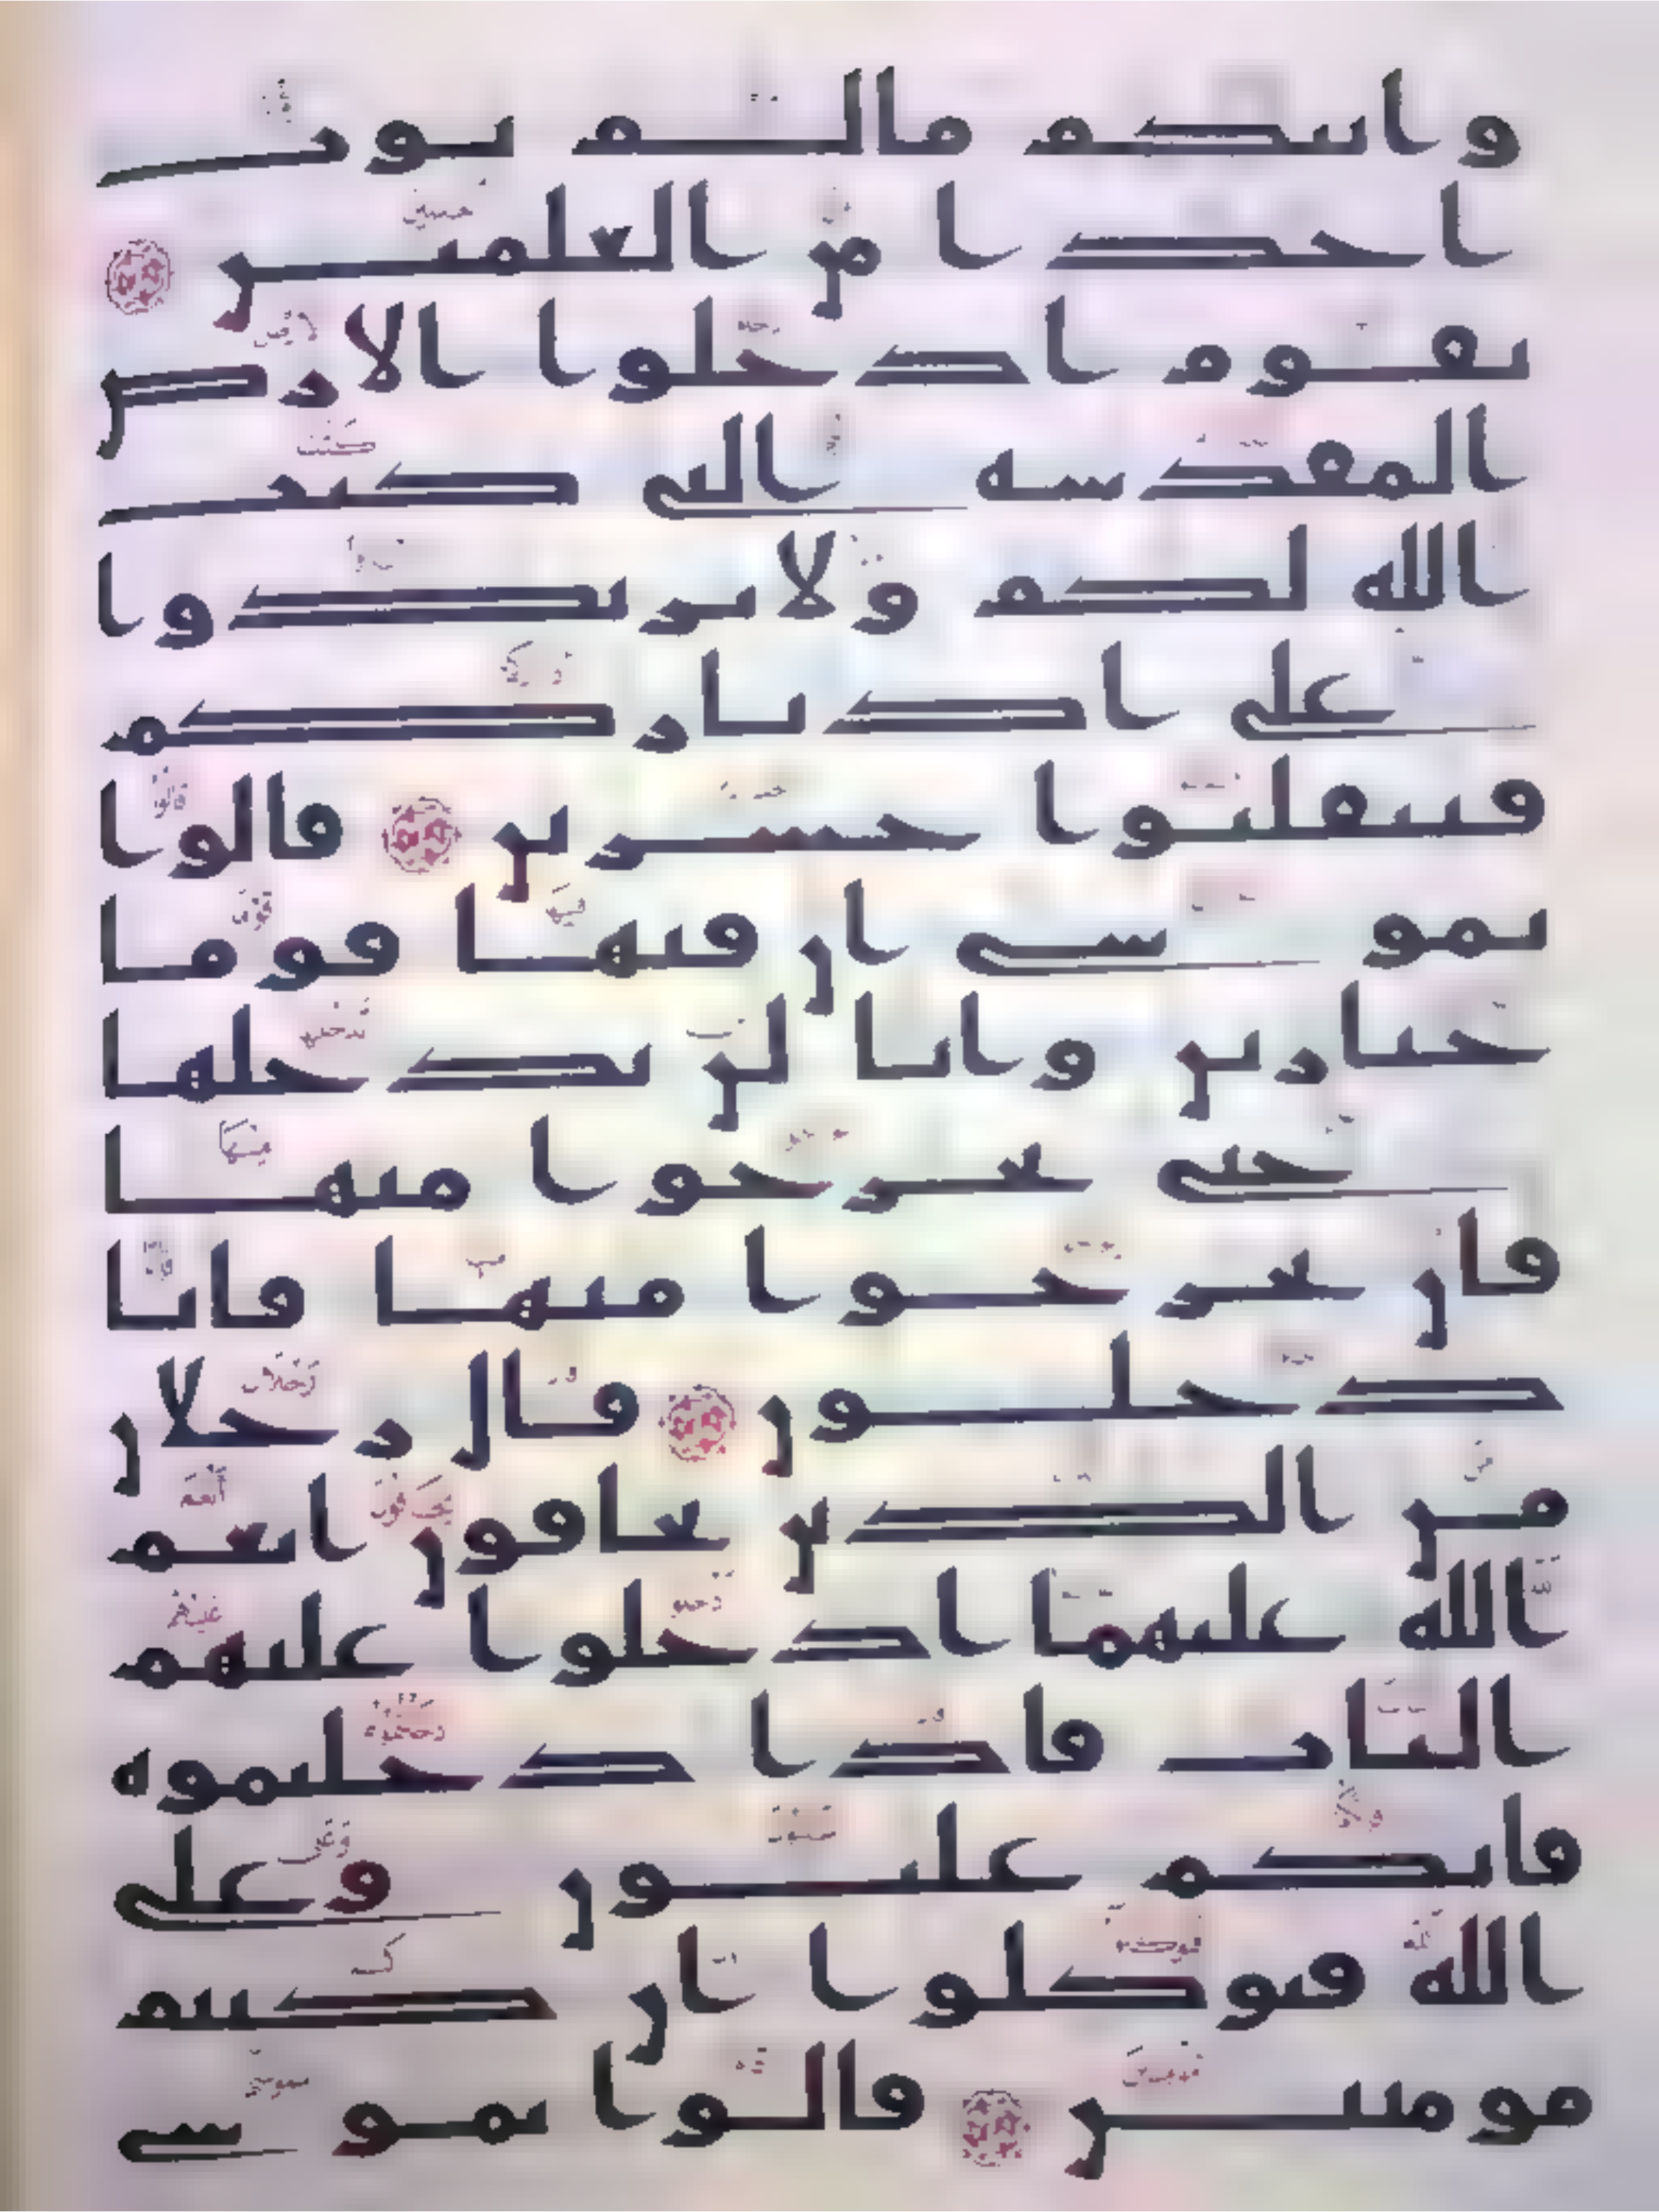 واتيكم مالم يوت
احدا من العلمين
يقوم ادخلوا الارض
المقدسة التي كتب
الله لكم ولا ترتدوا
على ادباركم
فتنقلبوا خسرين قالوا
يموسى ان فيها قوما
جبارين وانا لن ندخلها
حتى يخرجوا منها
فان يخرجوا منها فانا
دخلون قال رجلان
من الذين يخافون انعم
الله عليهما ادخلوا عليهم
الباب فاذا دخلتموه
فانكم غلبون وعلى
الله فتوكلوا ان كنتم
مومنين قالوا يموسى